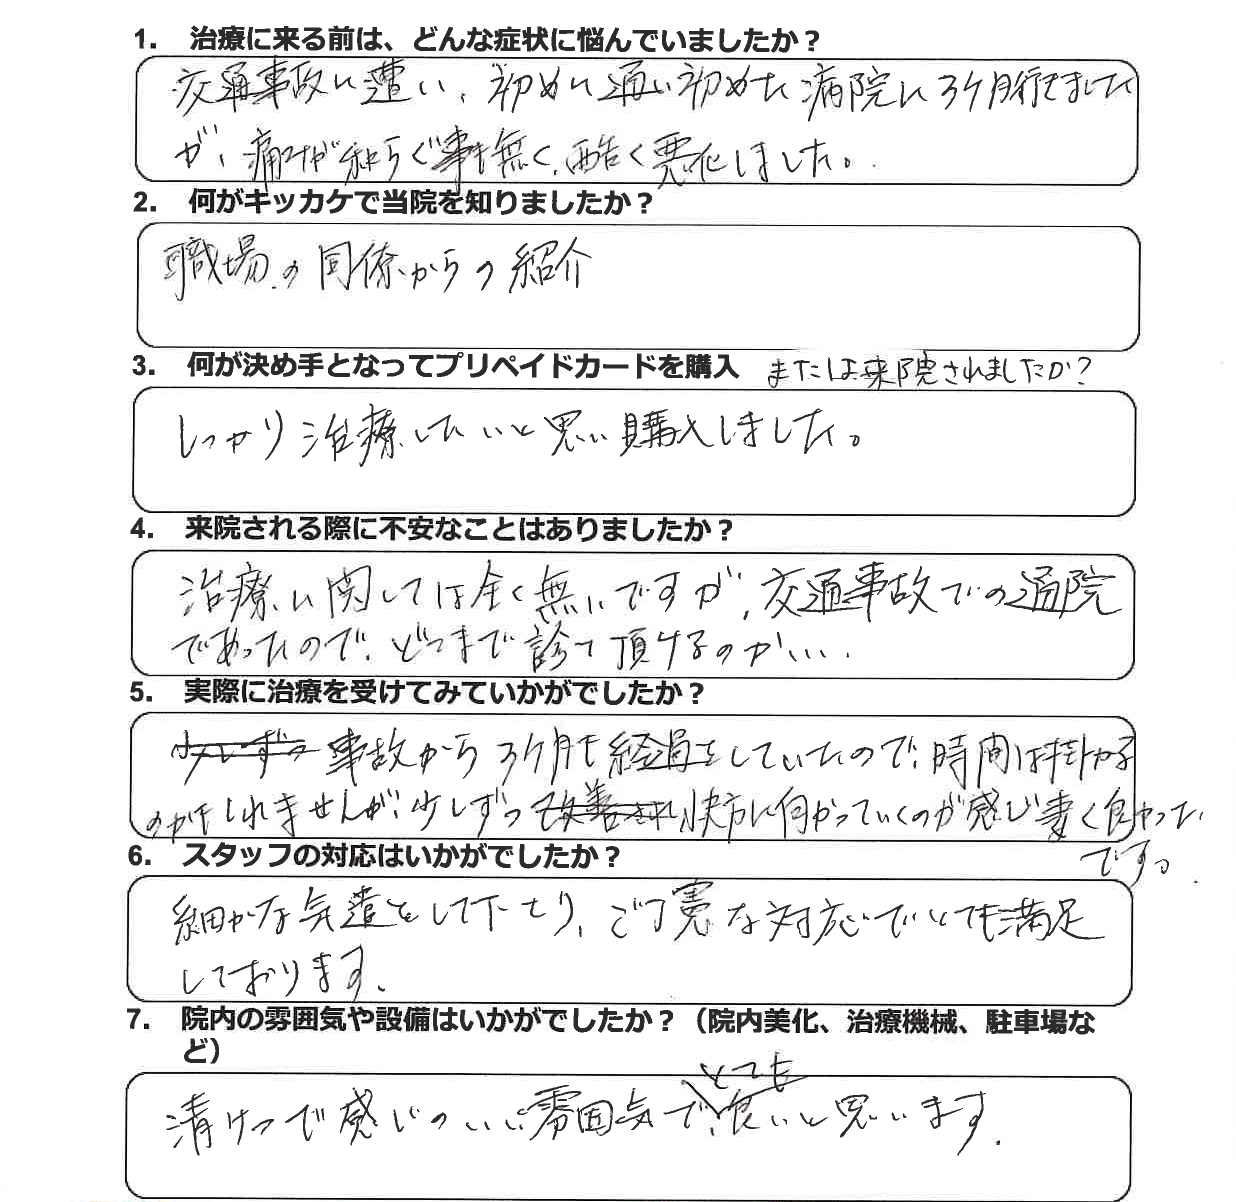 1. 治療に来る前は、どんな症状に悩んでいましたか？
交通事故に遭い、初めに通い初めた病院に3ケ月行きました
が、痛みが和らぐ事も無く、酷く悪化しました。
2. 何がキッカケで当院を知りましたか？
職場の同僚からの紹介
3. 何が決め手となってプリペイドカードを購入 または来院されましたか？
しっかり治療したいと思い購入しました。
4. 来院される際に不安なことはありましたか？
治療に関しては全く無いですが、交通事故での通院
であったので、どこまで診て頂けるのか、、、
5. 実際に治療を受けてみていかがでしたか？
少しずつ 事故から3ケ月も経過をしていたので、時間は掛かる
のかもしれませんが、少しずつ改善され快方に向かっていくのが感じ凄く良かった
です。
6. スタッフの対応はいかがでしたか？
細かな気遣をして下さり、ご丁寧な対応でとても満足
しております。
7. 院内の雰囲気や設備はいかがでしたか？（院内美化、治療機械、駐車場な
ど）
とても
清けつで感じのいい雰囲気で、良いと思います。